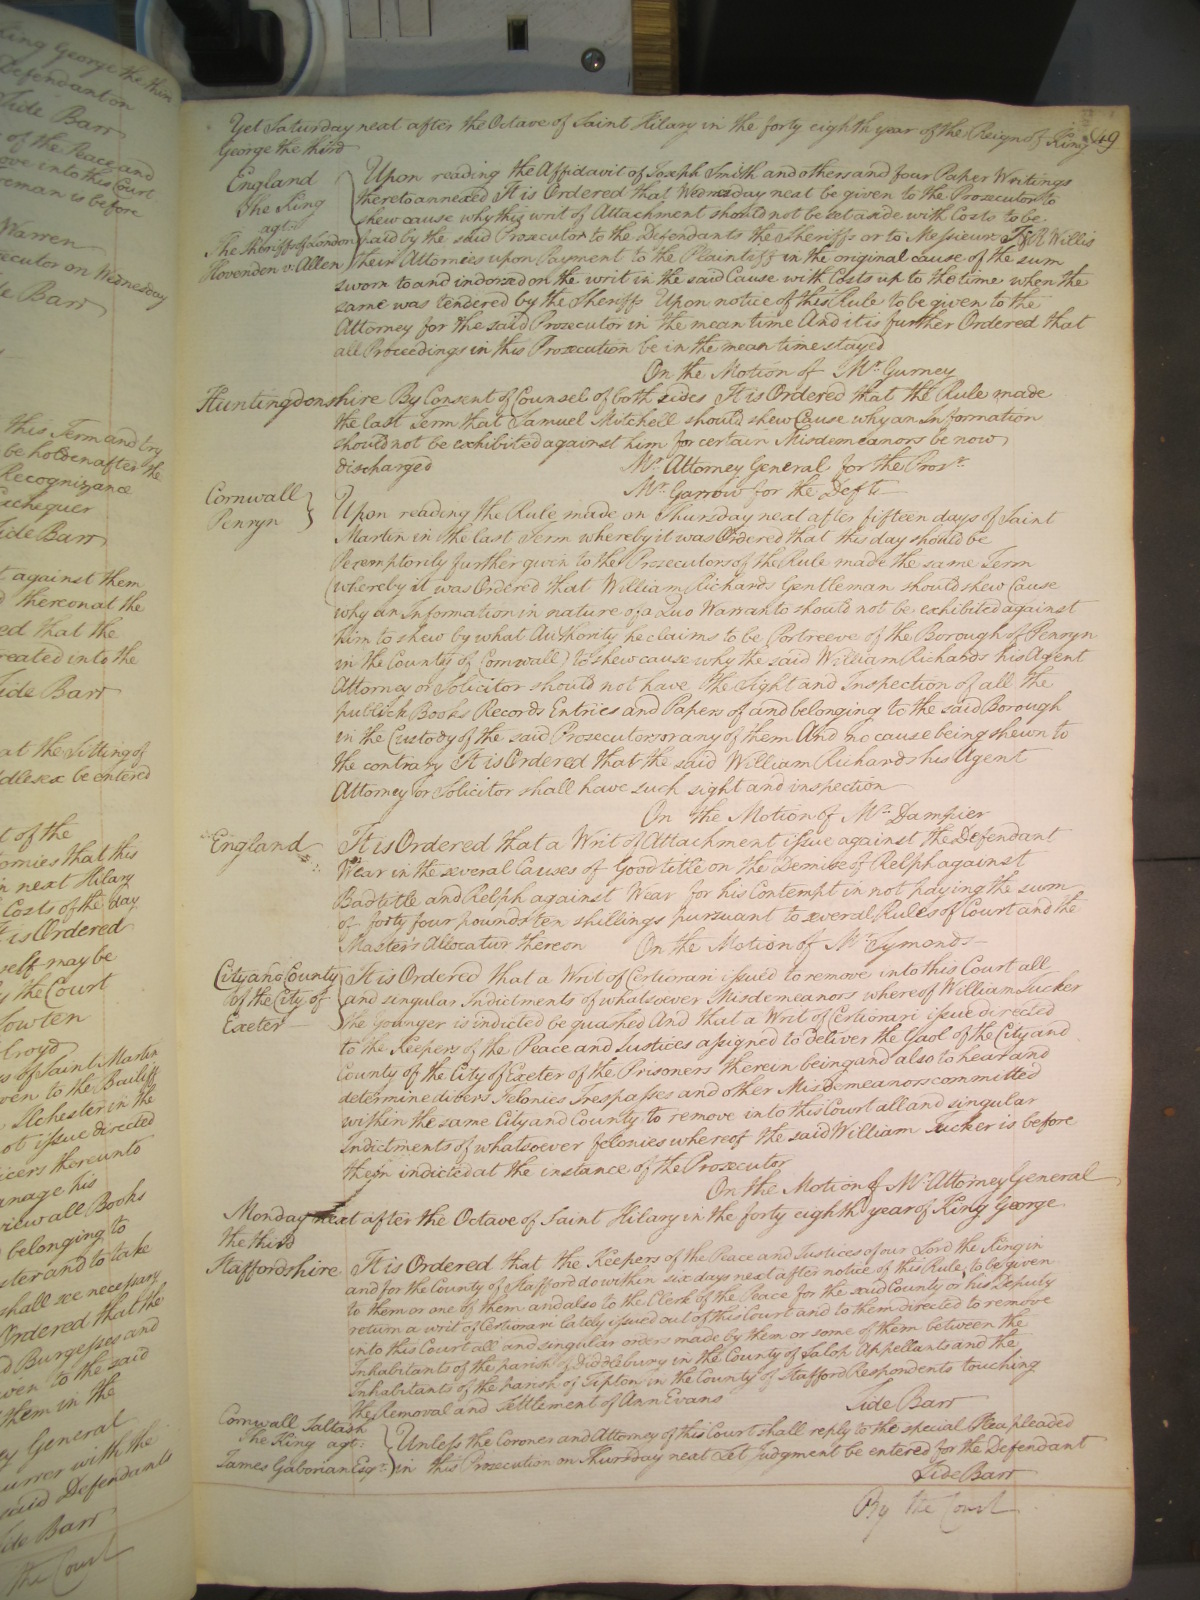 King George the thir
Defendant on
Side Barr
of the Peace and
ove into this Court
reman is before
Warren
secutor on Wednesday
de Barr
this Term and try
be holden after the
Recognizance
Exchequer
Side Barr
t against them
d thereon at the
red that the
treated into the
Side Barr
at the Sitting of
ddlesex be entered
t of the
ornies that this
in next Hilary
Costs of the day
t is Ordered
self may be
y the Court
Lowten
lroyd
s of Saint Martin
ven to the Bailiff
Ilchester in the
not issue directed
icers thereunto
anage his
view all Books
belonging to
ster and to take
shall see necessary
Ordered that the
d Burgesses and
ven to the said
them in the
ey General
urrer with the
said Defendants
Side Barr
the Court
Yet Saturday next after the Octave of Saint Hilary in the forty eighth year of the Reign of King 49
George the third
England Upon reading the Affidavit of Joseph Smith and others and four Paper Writings
The King thereto annexed It is Ordered that Wednesday next be given to the Prosecutor to
agt: shew cause why this writ of Attachment should not be set aside with Costs to be
The Sheriffs of London paid by the said Prosecutor to the Defendants the Sheriffs or to Messieurs J & R Willis
Hovenden v. Allen their Attornies upon Payment to the Plaintiff in the original cause of the sum
sworn to and indorsed on the writ in the said Cause with Costs up to the time when the
same was tendered by the Sheriff Upon notice of this Rule to be given to the
Attorney for the said Prosecutor in the mean time And it is further Ordered that
all Proceedings in this Prosecution be in the mean time stayed
On the Motion of Mr. Gurney
Huntingdonshire By Consent of Counsel of both sides It is Ordered that the Rule made
the last Term that Samuel Mitchell should shew Cause why an Information
should not be exhibited against him for certain Misdemeanors be now
discharged Mr. Attorney General for the Pror.
Mr. Garrow for the Deft.
Cornwall Upon reading the Rule made on Thursday next after fifteen days of Saint
Penryn Martin in the last Term whereby it was Ordered that this day should be
Peremptorily further given to the Prosecutors of the Rule made the same Term
whereby it was Ordered that William Richards Gentleman should shew Cause
why an Information in nature of a Quo Warranto should not be exhibited against
him to shew by what Authority he claims to be Portreeve of the Borough of Penryn
in the County of Cornwall) to shew cause why the said William Richards his Agent
Attorney or Solicitor should not have the Sight and Inspection of all the
publick Books Records Entries and Papers of and belonging to the said Borough
in the Custody of the said Prosecutors or any of them And no cause being shewn to
the contrary It is Ordered that the said William Richards his Agent
Attorney or Solicitor shall have such sight and inspection
On the Motion of Mr. Dampier
England It is Ordered that a Writ of Attachment issue against the Defendant
Wear in the several Causes of Goodtitle on the Demise of Relph against
Badtitle and Relph against Wear for his Contempt in not paying the sum
of forty four pounds ten shillings pursuant to several Rules of Court and the
Master's Allocatur thereon On the Motion of Mr. Symonds
City and County It is Ordered that a Writ of Certiorari issued to remove into this Court all
of the City of and singular Indictments of whatsoever Misdemeanors whereof William Tucker
Exeter the Younger is indicted be quashed And that a Writ of Certiorari issue directed
to the Keepers of the Peace and Justices assigned to deliver the Gaol of the City and
County of the City of Exeter of the Prisoners therein being and also to hear and
determine divers Felonies Trespasses and other Misdemeanors committed
within the same City and County to remove into this Court all and singular
Indictments of whatsoever felonies whereof the said William Tucker is before
them indicted at the instance of the Prosecutor
On the Motion of Mr. Attorney General
Monday next after the Octave of Saint Hilary in the forty eighth year of King George
the third
Staffordshire It is Ordered that the Keepers of the Peace and Justices of our Lord the King in
and for the County of Stafford do within six days next after notice of this Rule to be given
to them or one of them and also to the Clerk of the Peace for the said County or his Deputy
return a writ of Certiorari lately issued out of this Court and to them directed to remove
into this Court all and singular orders made by them or some of them between the
Inhabitants of the parish of Diddlebury in the County of Salop Appellants and the
Inhabitants of the parish of Tipton in the County of Stafford Respondents touching
the Removal and Settlement of Ann Evans Side Barr
Cornwall Saltash Unless the Coroner and Attorney of this Court shall reply to the special Plea pleaded
The King agt:
James Gaborian Esqr. in this Prosecution on Thursday next Let Judgment be entered for the Defendant
Side Barr
By the Court